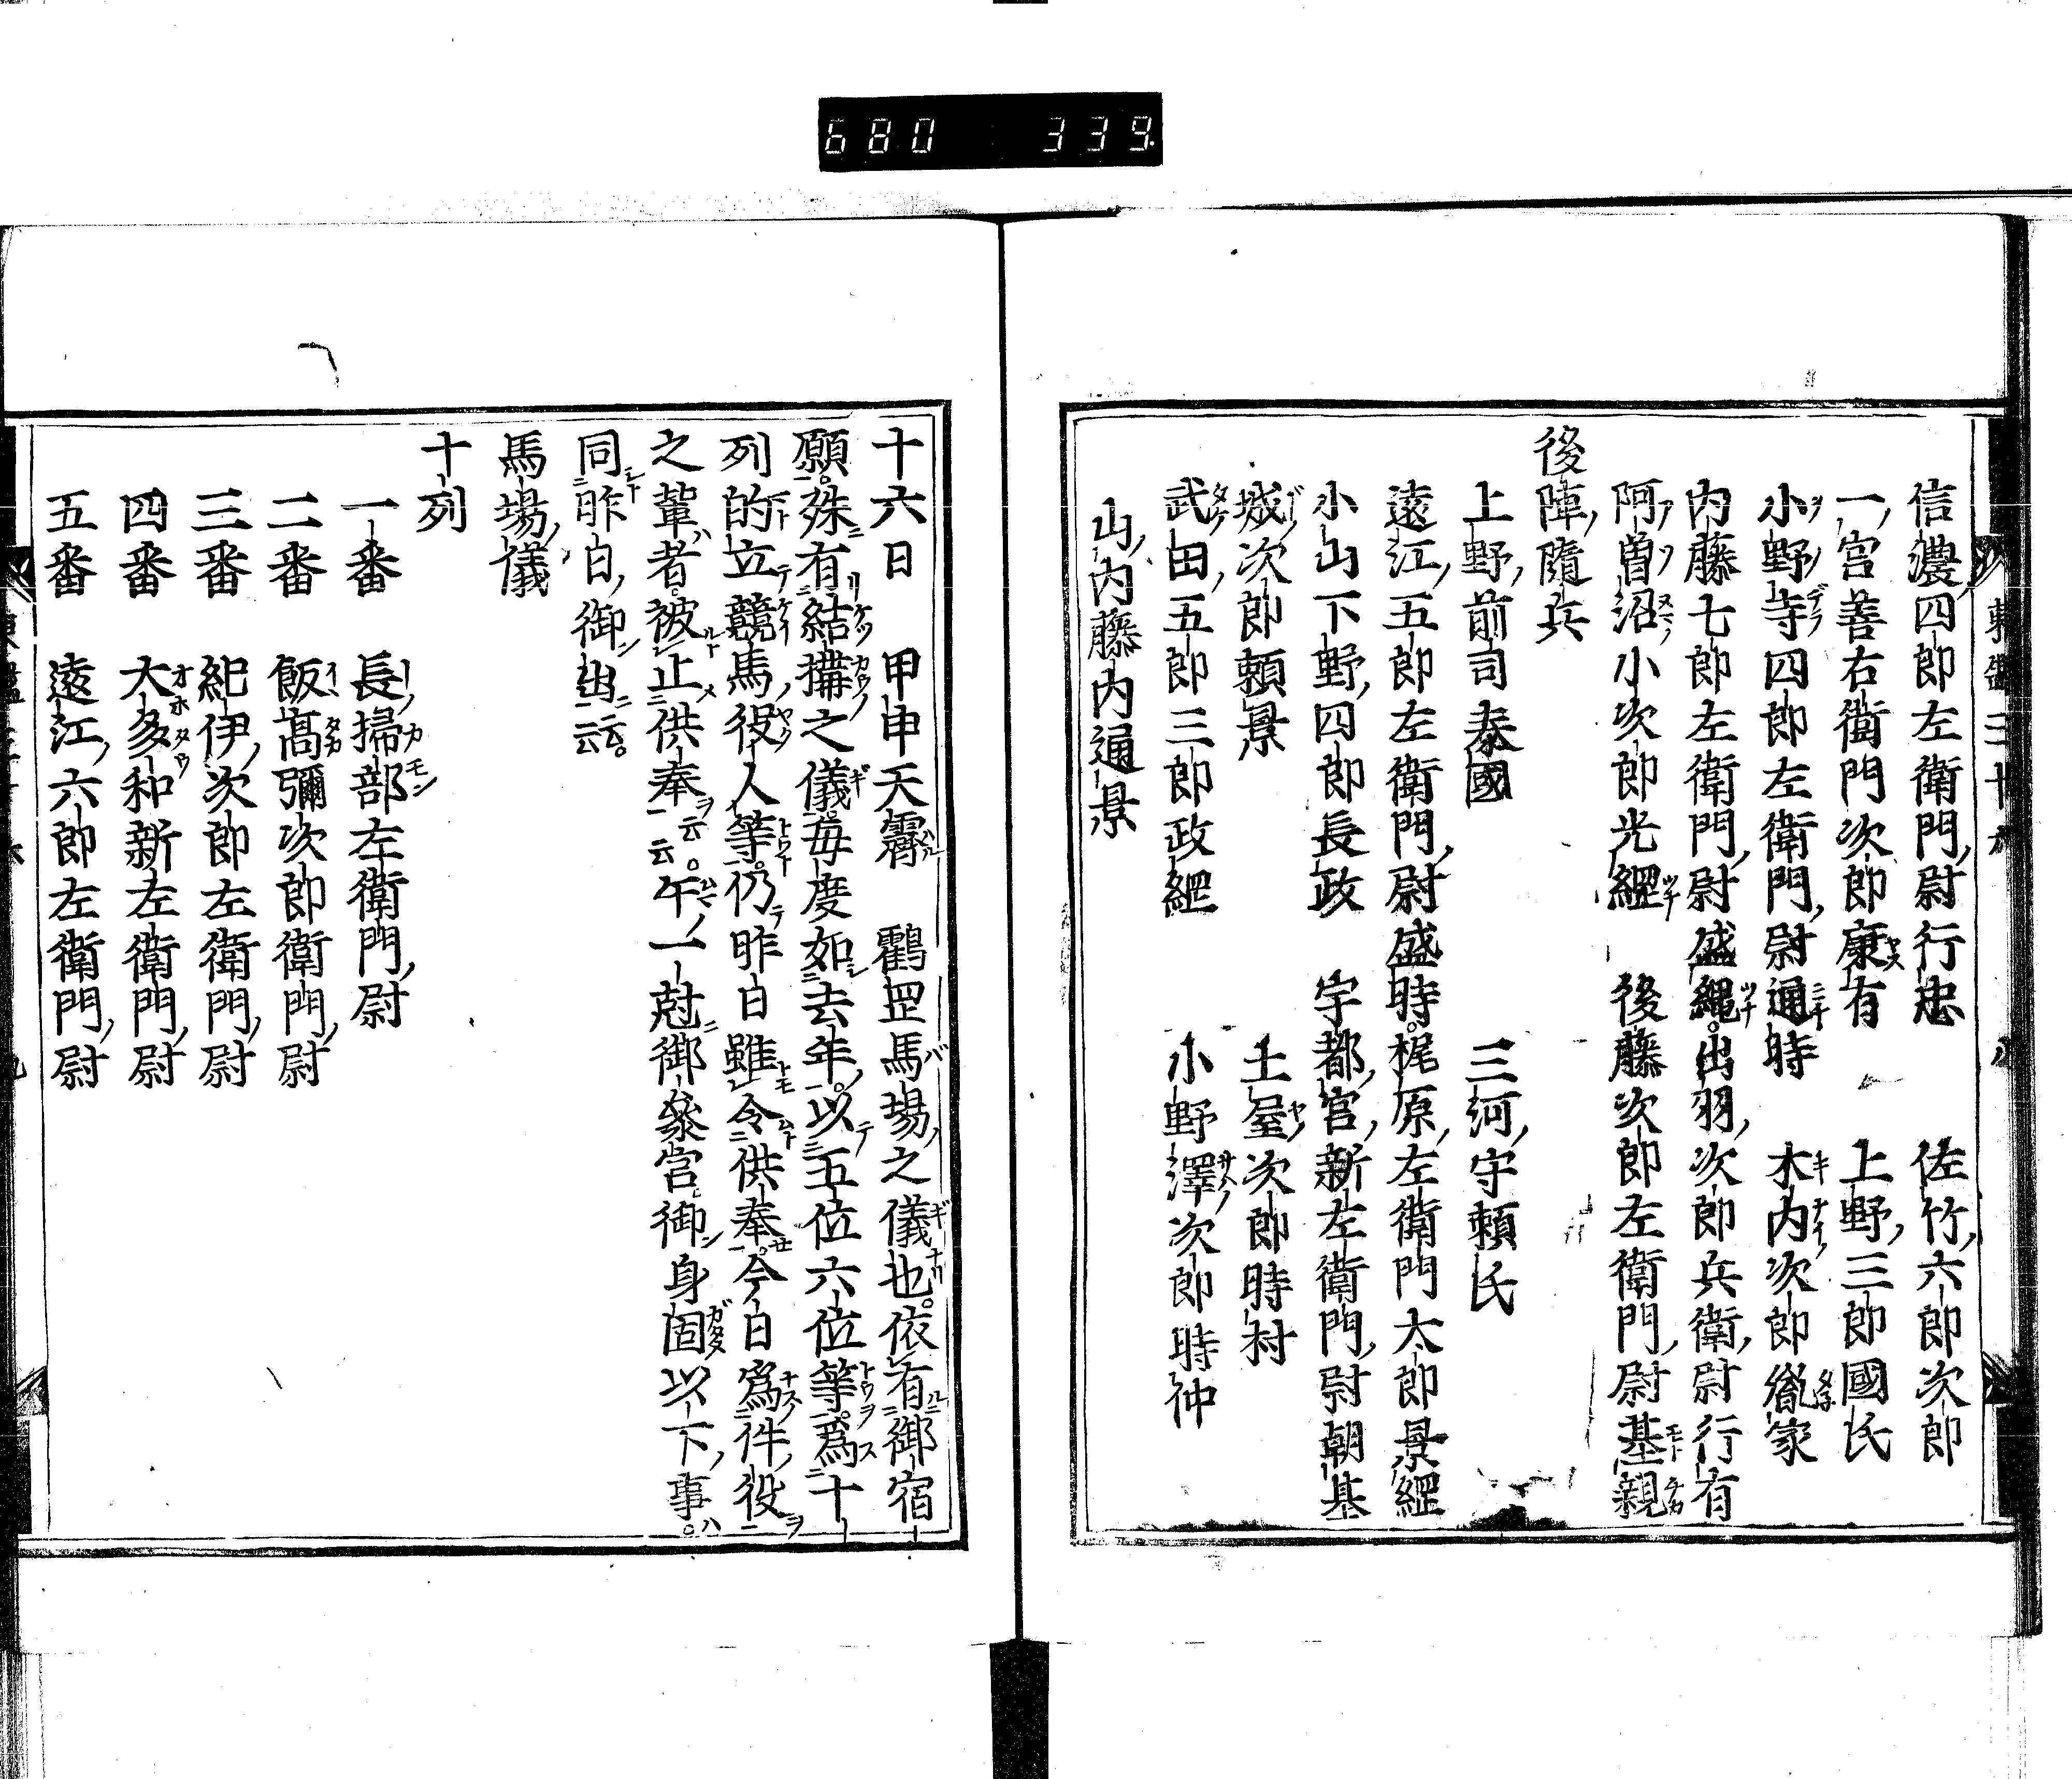 680 339.
信濃四郎左衛門尉行忠 佐竹六郎次郎
一宮善右衛門次郎康有 上野三郎國氏
小野寺四郎左衛門尉通時 木内次郎胤家
内藤七郎左衛門尉盛繩 出羽次郎兵衛尉行有
阿曽沼小次郎光綱 後藤次郎左衛門尉基親
後陣隨兵
上野前司泰國 三河守頼氏
遠江五郎左衛門尉盛時 梶原左衛門太郎景綱
小山下野四郎長政 宇都宮新左衛門尉朝基
城次郎頼景 土屋次郎時村
武田五郎三郎政綱 小野澤次郎時仲
山内藤内通景
十六日 甲申天霽 鶴罡馬場之儀也依有御宿
願殊有結搆之儀毎度如去年以五位六位等爲十
列的立競馬役人等仍昨日雖令供奉今日爲件役
之輩者被止供奉云云午一尅御參宮御身固以下事
同昨日御出云云
馬場儀
十列
一番 長掃部左衛門尉
二番 飯髙彌次郎衛門尉
三番 紀伊次郎左衛門尉
四番 大多和新左衛門尉
五番 遠江六郎左衛門尉